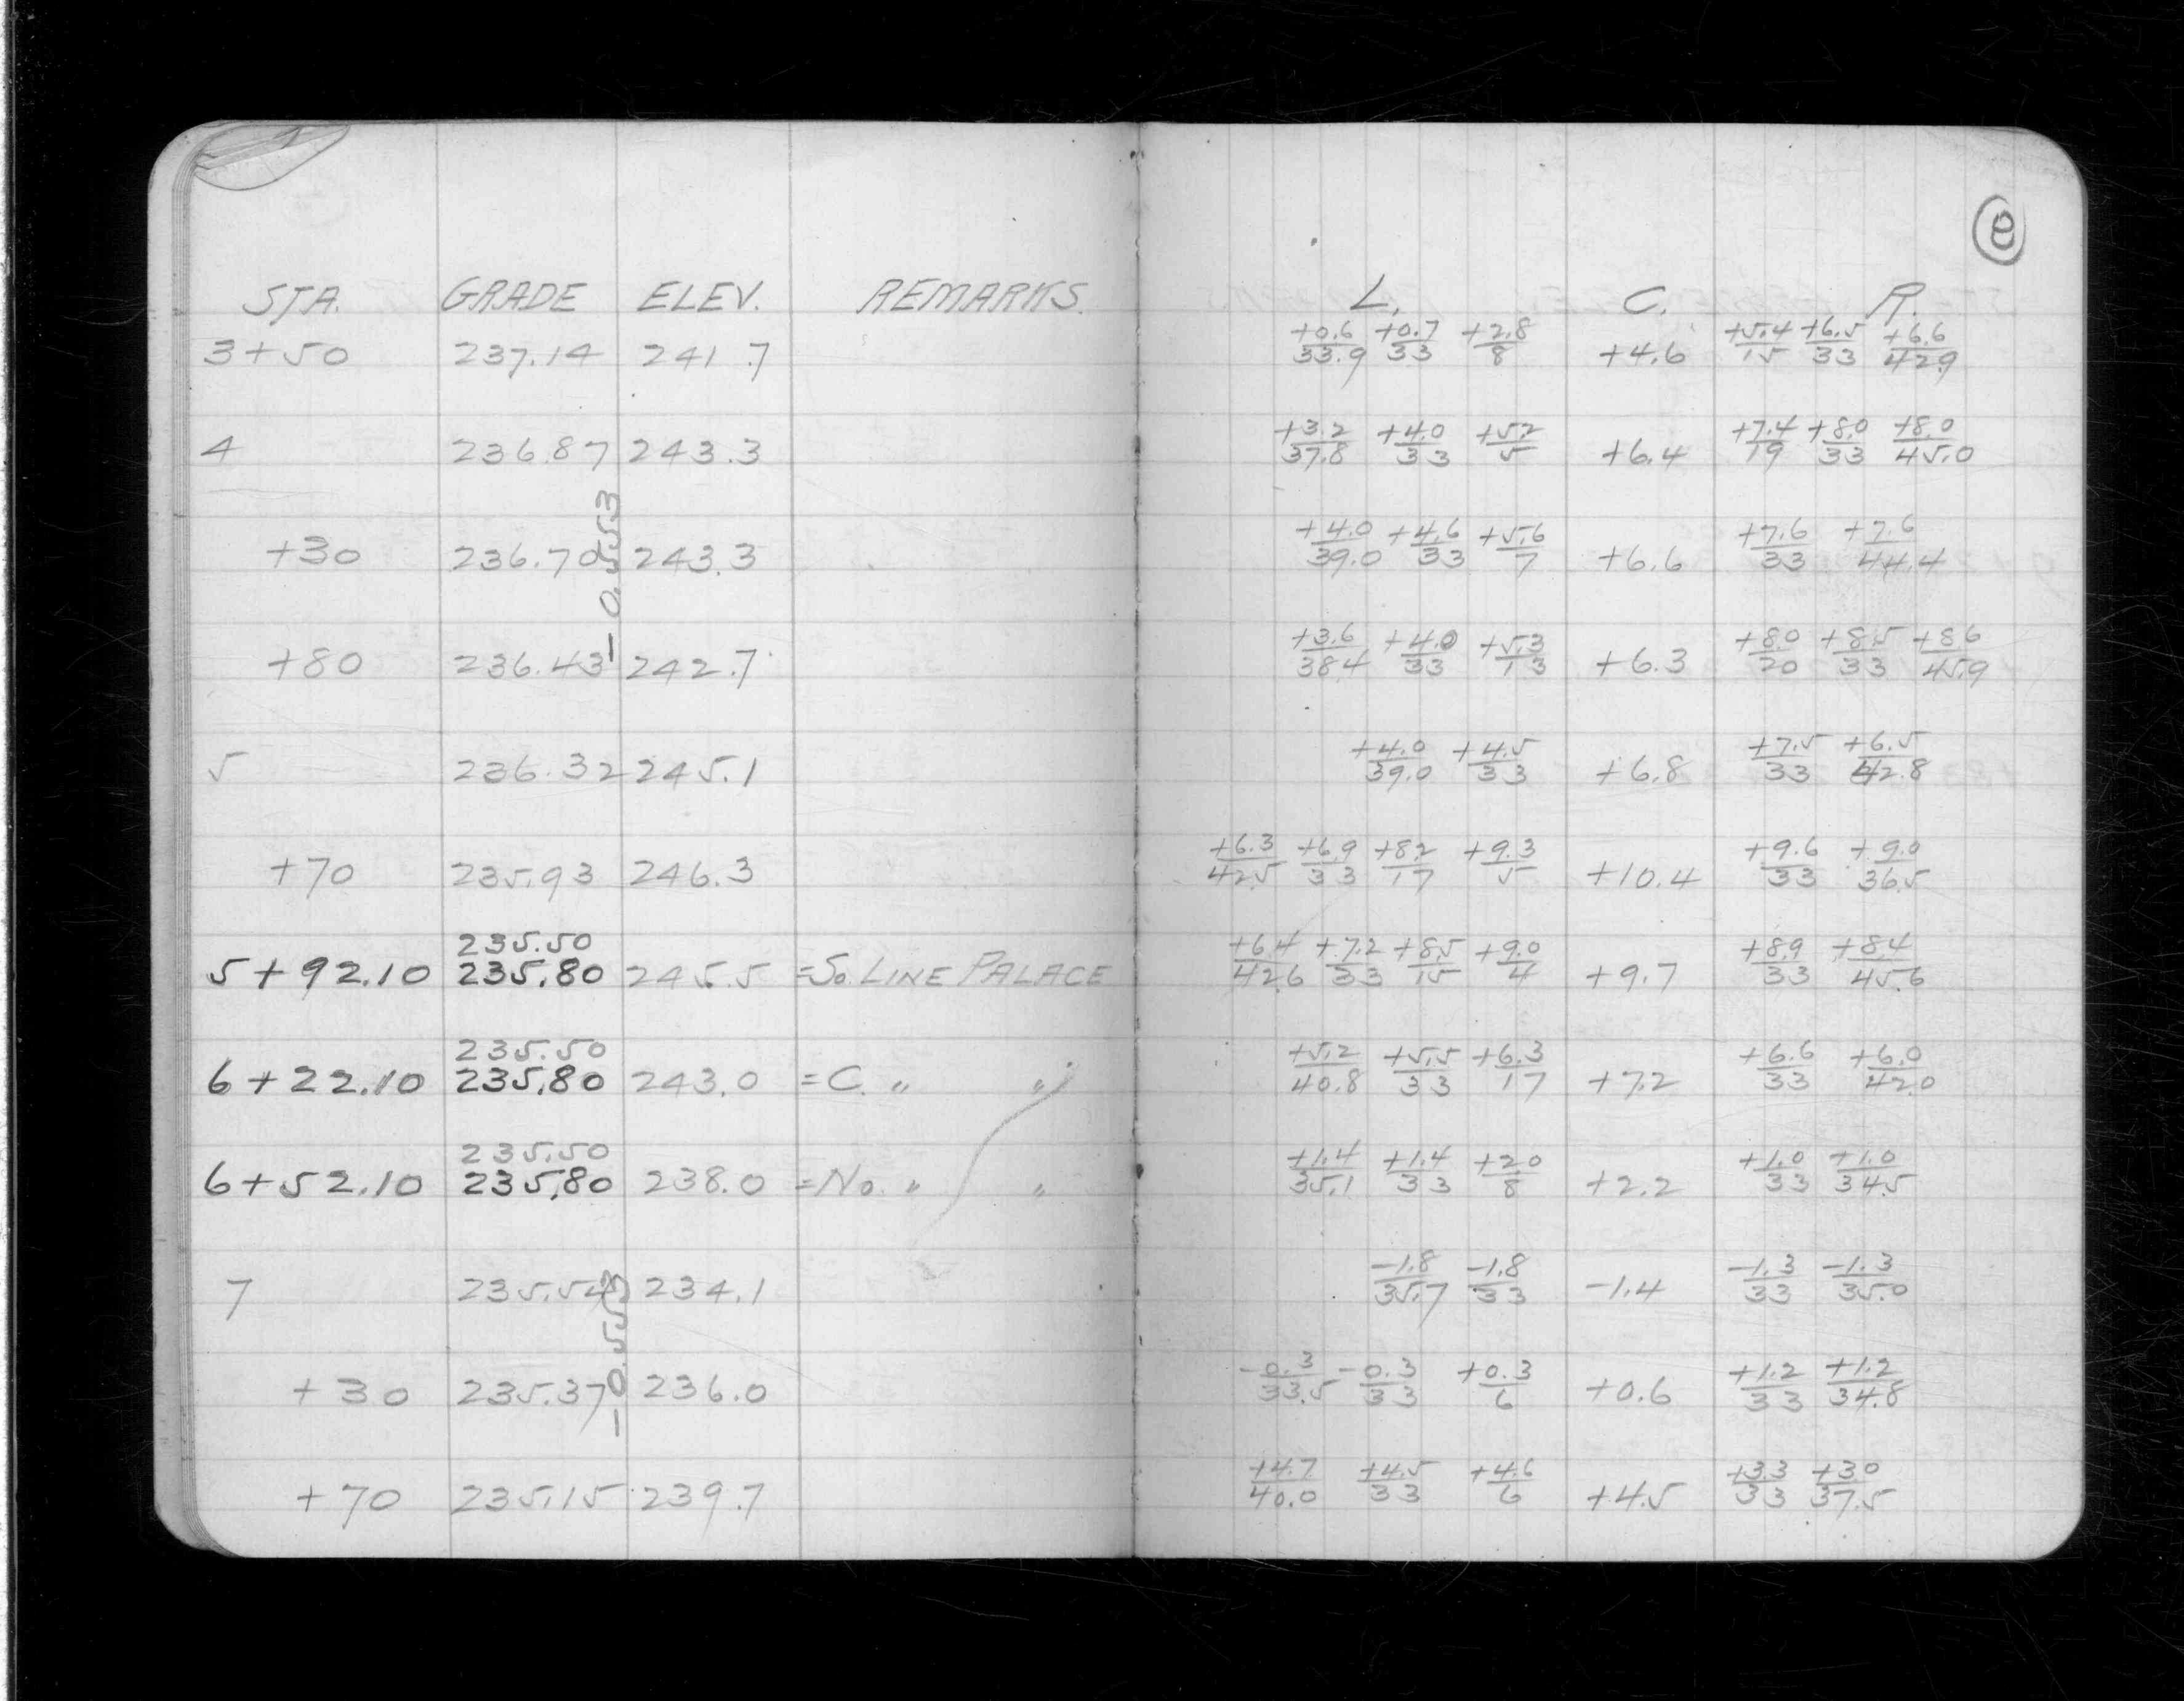 e
STA. GRADE ELEV. REMARKS. L. C. R.
3+50 237.14 241.7 +0.6/33.9 +0.7/33 +2.8/8 +4.6 +5.4/15 +6.5/33 +6.6/42.9
4 236.87 243.3 +3.2/37.8 +4.0/33 +5.2/5 +6.4 +7.4/19 +8.0/33 +8.0/45.0
-0.553
+30 236.70 243.3 +4.0/39.0 +4.6/33 +5.6/7 +6.6 +7.6/33 +7.6/44.4
+80 236.43 242.7 +3.6/38.4 +4.0/33 +5.3/13 +6.3 +8.0/20 +8.5/33 +8.6/45.9
5 236.32 245.1 +4.0/39.0 +4.5/33 +6.8 +7.5/33 +6.5/42.8
+70 235.93 246.3 +6.3/42.5 +6.9/33 +8.2/17 +9.3/5 +10.4 +9.6/33 +9.0/36.5
235.50
5+92.10 235.80 245.5 =So. LINE PALACE +6.4/42.6 +7.2/33 +8.5/15 +9.0/4 +9.7 +8.9/33 +8.4/45.6
235.50
6+22.10 235.80 243.0 =C. " " +5.2/40.8 +5.5/33 +6.3/17 +7.2 +6.6/33 +6.0/42.0
235.50
6+52.10 235.80 238.0 =No. " " +1.4/35.1 +1.4/33 +2.0/8 +2.2 +1.0/33 +1.0/34.5
7 235.54 234.1 -1.8/35.7 -1.8/33 -1.4 -1.3/33 -1.3/35.0
-0.553
+30 235.37 236.0 -0.3/33.5 -0.3/33 +0.3/6 +0.6 +1.2/33 +1.2/34.8
+70 235.15 239.7 +4.7/40.0 +4.5/33 +4.6/6 +4.5 +3.3/33 +3.0/37.5